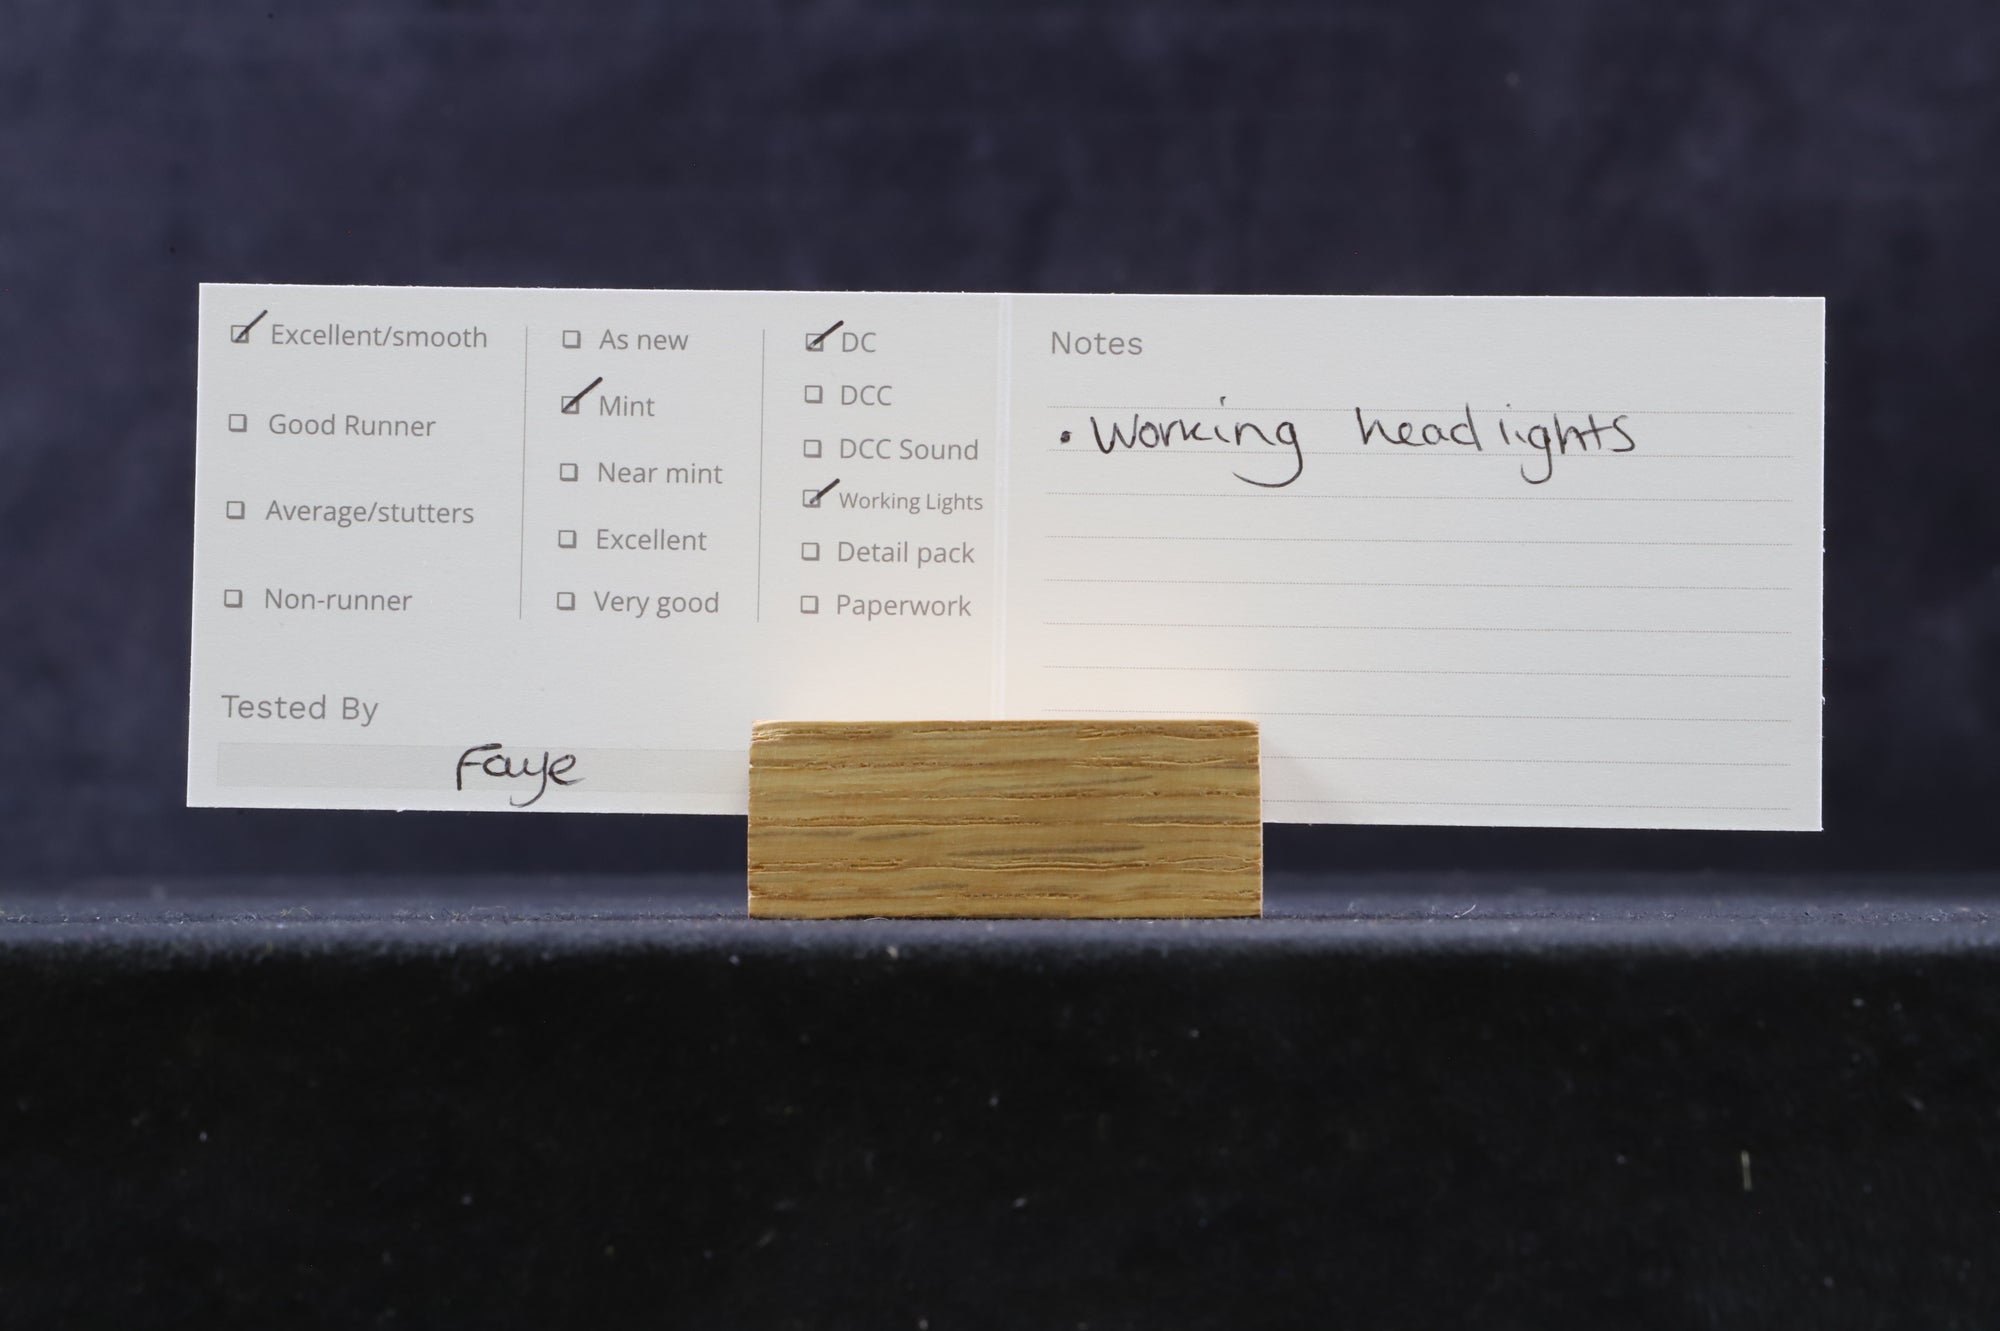 ☑ Excellent/smooth
☐ Good Runner
☐ Average/stutters
☐ Non-runner
☐ As new
☑ Mint
☐ Near mint
☐ Excellent
☐ Very good
☑ DC
☐ DCC
☐ DCC Sound
☑ Working Lights
☐ Detail pack
☐ Paperwork
Tested By
Faye
Notes
• Working headlights